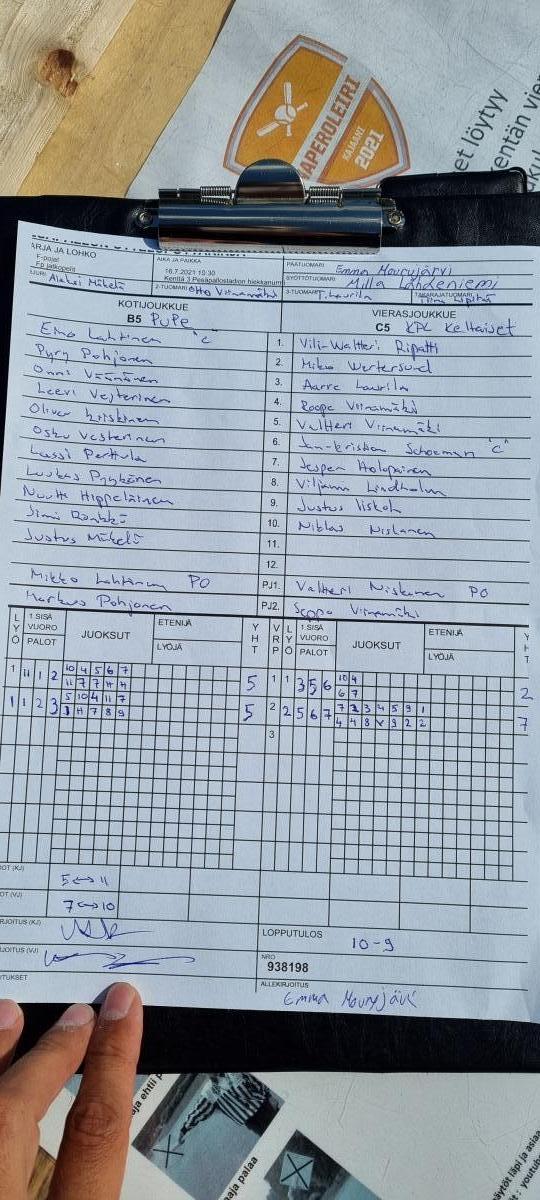 NAPEROLEIRI
KAJAANI
2021
et löytyy
entän vier
SARJA JA LOHKO
F-pojat
Fp jatkopelit
AIKA JA PAIKKA
16.7.2021 10:30
Kenttä 3 Pesäpallostadion hiekkanurmi
PÄÄTUOMARI
Emma Mouryjärvi
SYÖTTÖTUOMARI
Milla Lahdeniemi
Aleksi Mäkelä
2-TUOMARI Otto Viinamäki
3-TUOMARI T. Laurila
TAKARAJATUOMARI
KOTIJOUKKUE
B5 PuPe
VIERASJOUKKUE
C5 KPL Keltaiset
Eino Lahtinen "C"
1. Vili-Waltteri Ripatti
Pyry Pohjonen
2. Miko Wertersund
Onni Väänänen
3. Aarre Laurila
Leevi Vesterinen
4. Roope Viinamäki
Oliver Kiiskinen
5. Valtteri Viinamäki
Osku Vesterinen
6. Jan-Kristian Schoeman "C"
Lassi Perttula
7. Jesper Holopainen
Luukas Pyykönen
8. Viljami Lindholm
Nuutti Hippeläinen
9. Justus Iiskola
Jimi Rönkkö
10. Niklas Niskanen
Justus Mäkelä
11.
12.
Mikko Lahtinen PO
PJ1. Valtteri Niskanen PO
Markus Pohjonen
PJ2. Seppo Viinamäki
LYÖ
1.SISÄ VUORO
PALOT
JUOKSUT
ETENIJÄ
LYÖJÄ
YHT
VRP
LYÖ
1.SISÄ VUORO
PALOT
JUOKSUT
ETENIJÄ
LYÖJÄ
YHT
1 11 1 2 10 4 5 6 7 5
11 7 7 H H
1 1 3 5 6 10 4 2
6 7
1 1 2 3 5 10 4 11 7 5
1 H 7 8 9
2 2 5 6 7 7 2 3 4 5 9 1 7
4 4 8 X 9 2 2
3
OT (KJ)
5 ↔ 11
OT (VJ)
7 ↔ 10
RJOITUS (KJ)
LOPPUTULOS
10-9
RJOITUS (VJ)
NRO
938198
ALLEKIRJOITUS
Emma Mouryjärvi
TUKSET
aja ehtii p
naja palaa
äytöt läpi ja asiaa
t: youtube